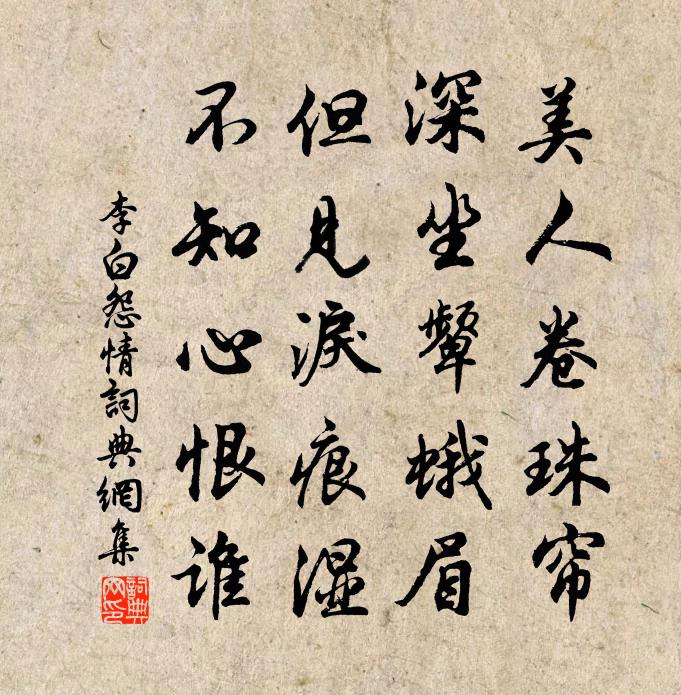 美人卷珠帘
深坐颦蛾眉
但见淚痕湿
不知心恨谁
李白怨情詞典網集
詞典
网印